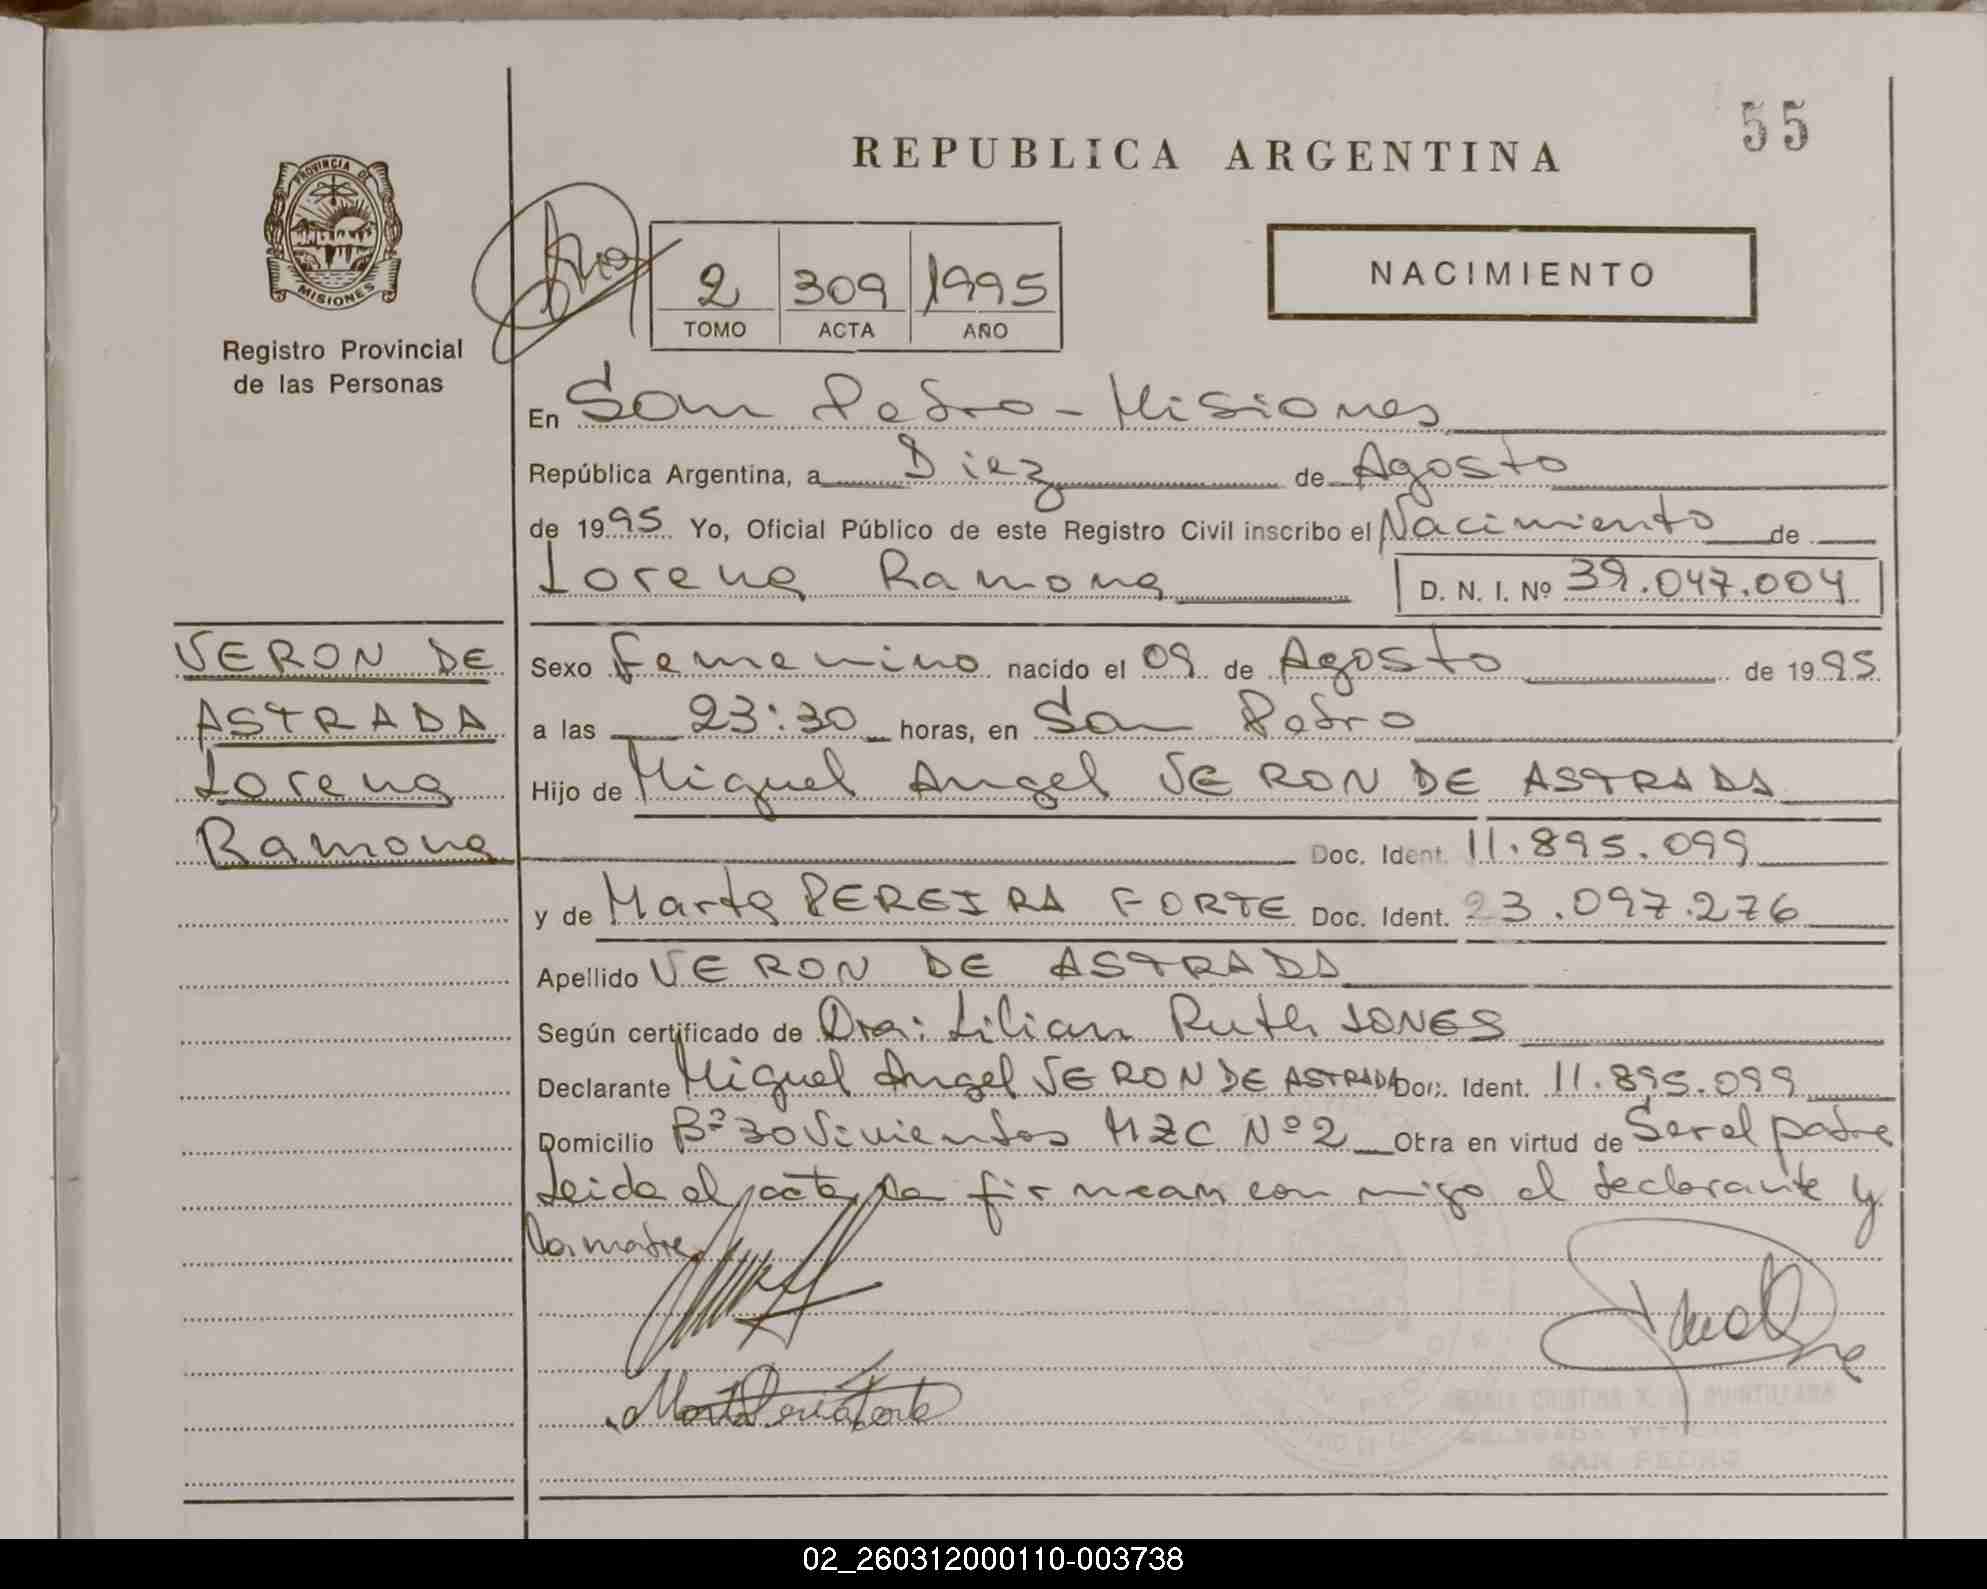 55
REPUBLICA ARGENTINA
PROVINCIA DE
MISIONES
Registro Provincial
de las Personas
2 309 1995
TOMO ACTA AÑO
NACIMIENTO
En San Pedro - Misiones
República Argentina, a Diez de Agosto
de 1995 Yo, Oficial Público de este Registro Civil inscribo el Nacimiento de
Lorena Ramona D. N. I. Nº 39.047.004
VERON DE
ASTRADA
Lorena
Ramona
Sexo Femenino nacido el 09 de Agosto de 1995
a las 23:30 horas, en San Pedro
Hijo de Miguel Angel VERON DE ASTRADA
Doc. Ident. 11.895.099
y de Marta PEREIRA FORTE Doc. Ident. 23.097.276
Apellido VERON DE ASTRADA
Según certificado de Dra: Lilian Ruth JONES
Declarante Miguel Angel VERON DE ASTRADA Doc. Ident. 11.895.099
Domicilio Bº 30 Viviendas MZC Nº 2 Otra en virtud de Ser el padre
Leida el acta, la firman con migo el declarante y
la madre
SAN PEDRO
02_260312000110-003738